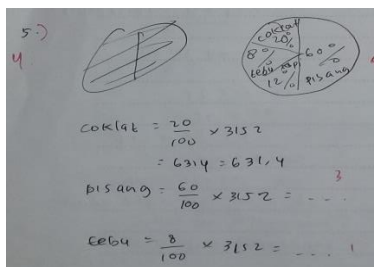 5.)
4
coklat 20%
8% 60%
tebu
12% pisang
coklat = 20/100 × 3152
= 6314 = 631,4
3
pisang = 60/100 × 3152 = - - -
tebu = 8/100 × 3152 = - - - 1